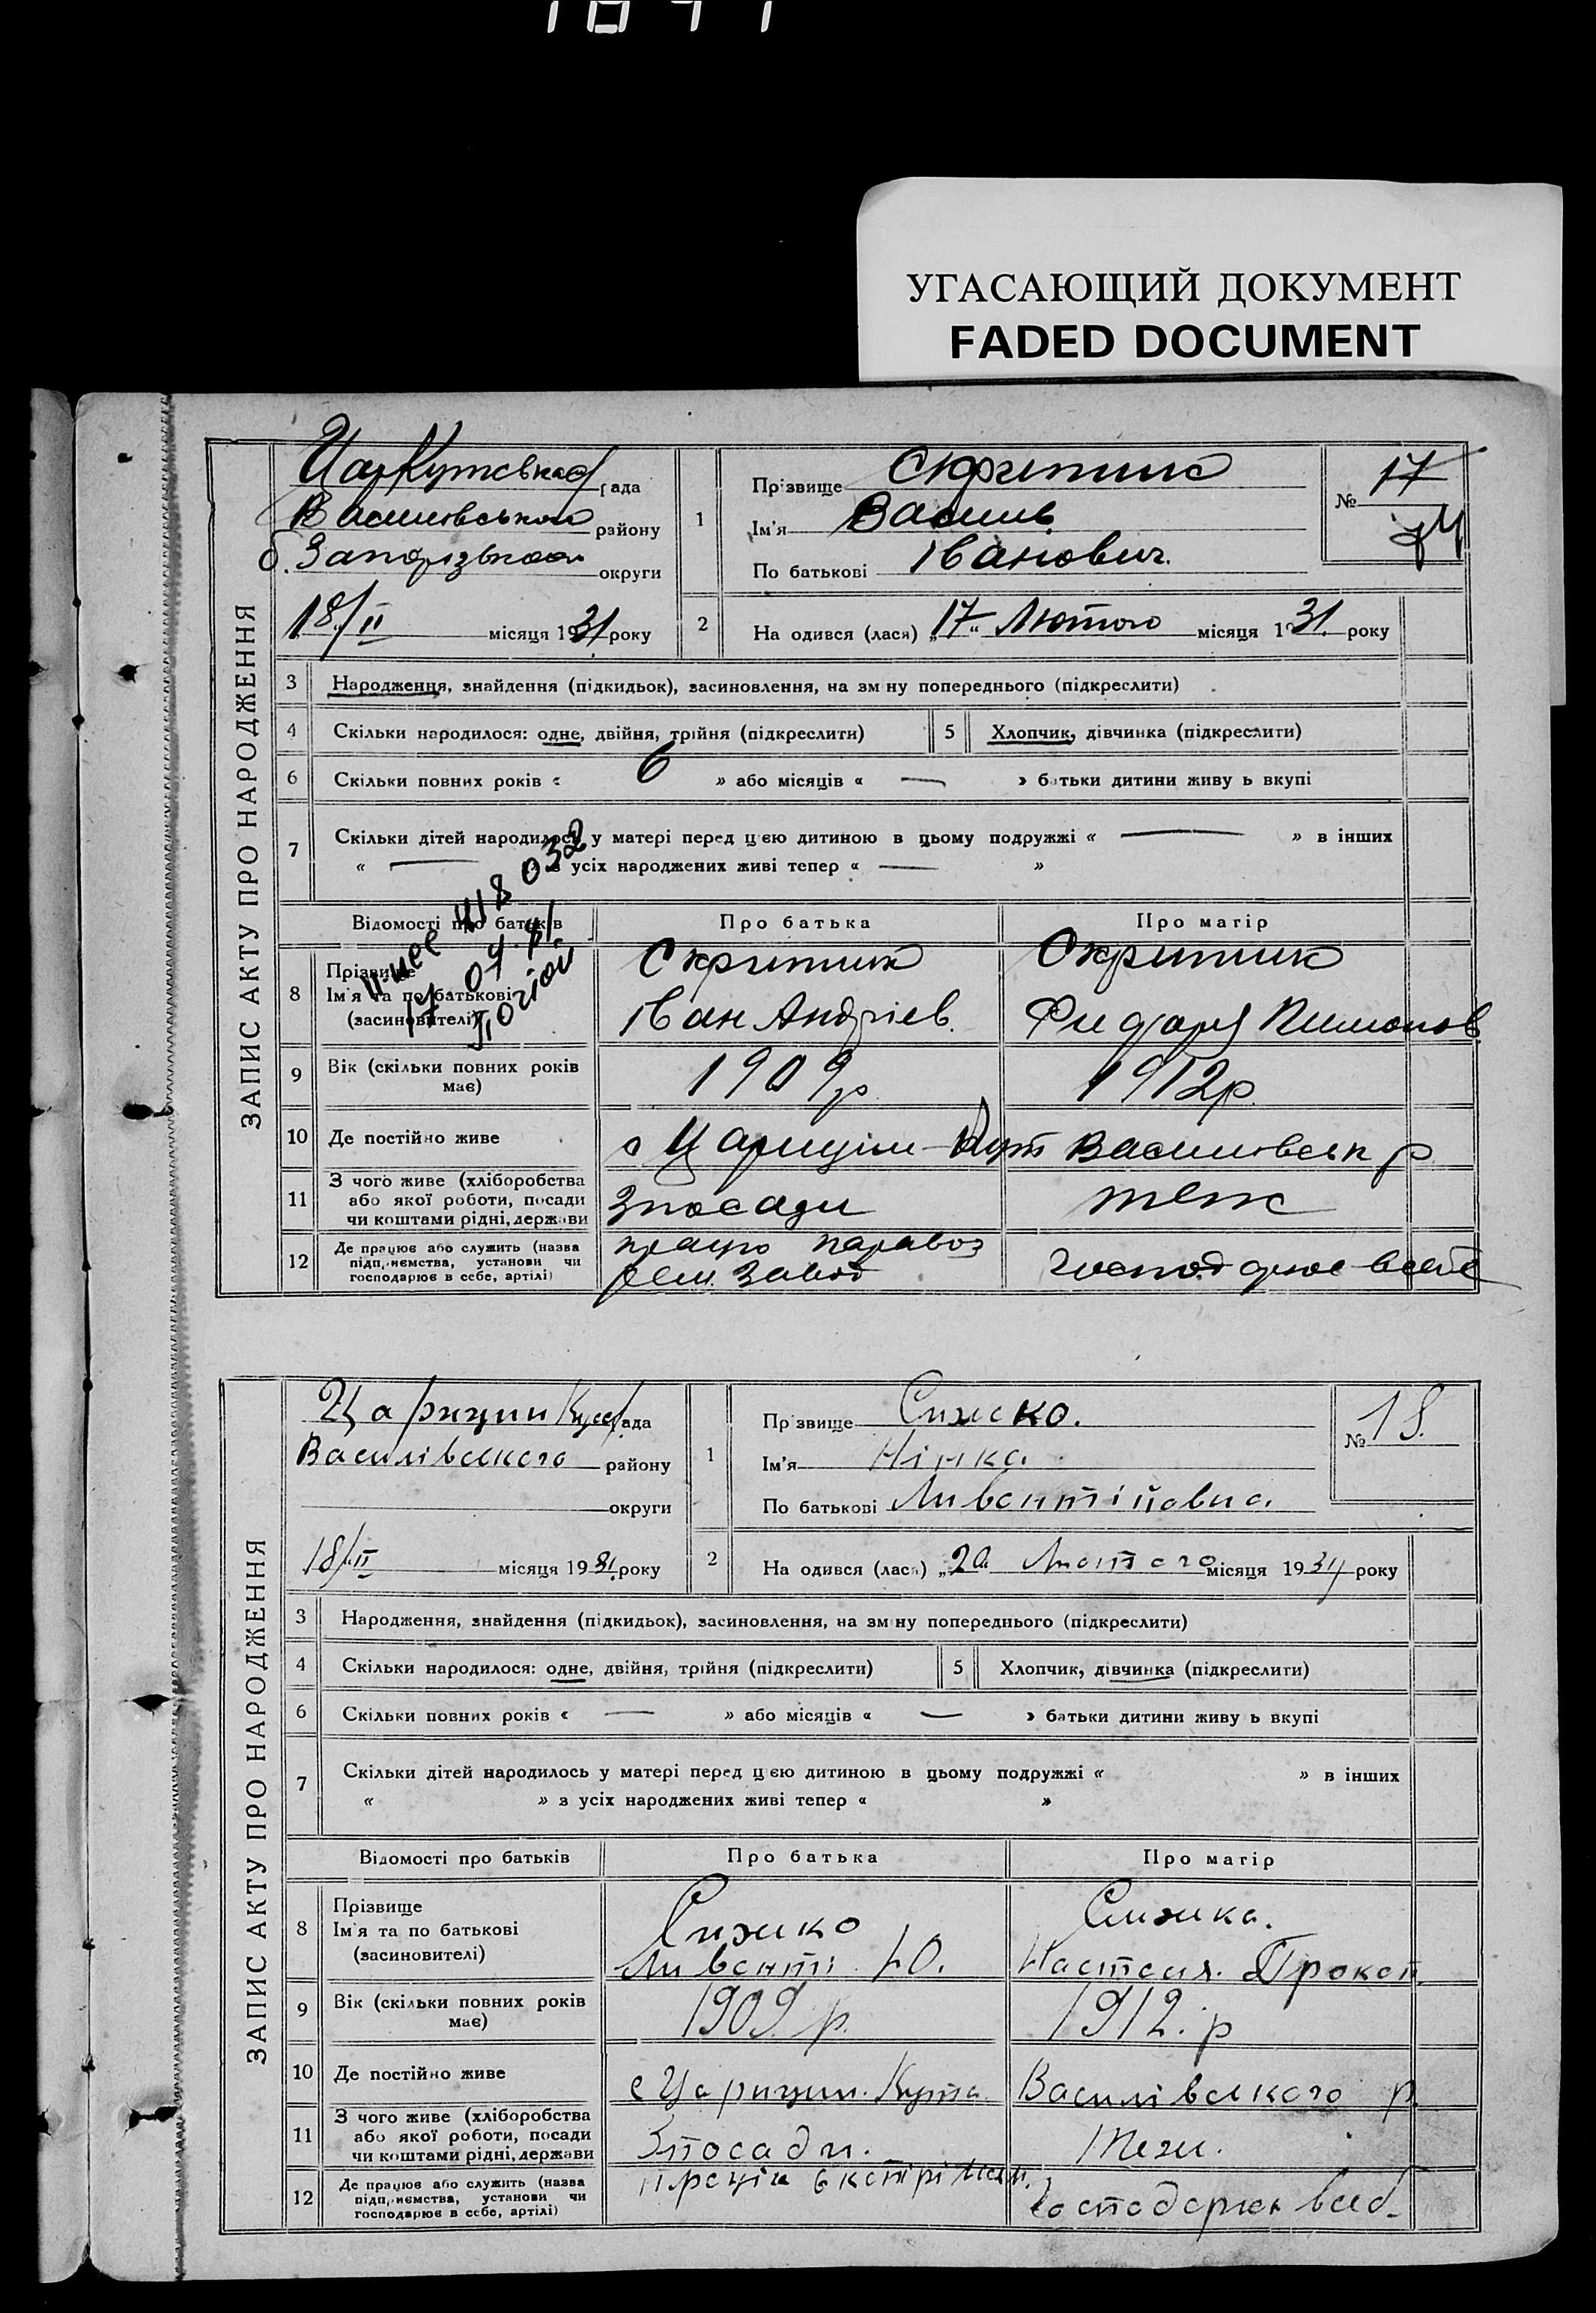 УГАСАЮЩИЙ ДОКУМЕНТ
FADED DOCUMENT
ЗАПИС АКТУ ПРО НАРОДЖЕННЯ
ЦарКутовська рада
Василівського району
б. Запорізької округи
18/II місяця 1931 року
1
Прізвище Скрипник
Ім'я Василь
По батькові Іванович.
№ 17
2
На одився (лася) „17“ Лютого місяця 1931. року
3 Народження, знайдення (підкидьок), засиновлення, на зм ну попереднього (підкреслити)
4 Скільки народилося: одне, двійня, трійня (підкреслити) 5 Хлопчик, дівчинка (підкреслити)
6 Скільки повних років « 6 » або місяців « — » батьки дитини живу ь вкупі
7 Скільки дітей народилось у матері перед цією дитиною в цьому подружжі « — » в інших
« — » з усіх народжених живі тепер « — »
Відомості про батьків Про батька Про матір
8 Прізвище
Ім'я та по батькові
(засиновителі)
Скрипник
Іван Андріев.
Скрипник
9 Вік (скільки повних років має) 1909р 1912р.
10 Де постійно живе с Царицин-Кут Василовськ р
11 З чого живе (хліборобства
або якої роботи, посади
чи коштами рідні, держави
Зпосади теж
12 Де працює або служить (назва
підп,иємства, установи чи
господарює в себе, артілі)
працю паравоз
рем. завод
ЗАПИС АКТУ ПРО НАРОДЖЕННЯ
Царицин Кут рада
Василівського району
округи
18/II місяця 1931 року
1
Пр звище
Ім'я Нінка
По батькові
№ 18.
2
На одився (лася) „ Лютого місяця 1931 року
3 Народження, знайдення (підкидьок), засиновлення, на зм ну попереднього (підкреслити)
4 Скільки народилося: одне, двійня, трійня (підкреслити) 5 Хлопчик, дівчинка (підкреслити)
6 Скільки повних років « — » або місяців « — » батьки дитини живу ь вкупі
7 Скільки дітей народилось у матері перед цією дитиною в цьому подружжі « » в інших
« » з усіх народжених живі тепер « »
Відомості про батьків Про батька Про матір
8 Прізвище
Ім'я та по батькові
(засиновителі)
Настася. Прокоп.
9 Вік (скільки повних років має) 1909. р. 1912. р
10 Де постійно живе с Царицин. Кута Василівського р.
11 З чого живе (хліборобства
або якої роботи, посади
чи коштами рідні, держави
Зпосади. Теж.
12 Де працює або служить (назва
підп,иємства, установи чи
господарює в себе, артілі)